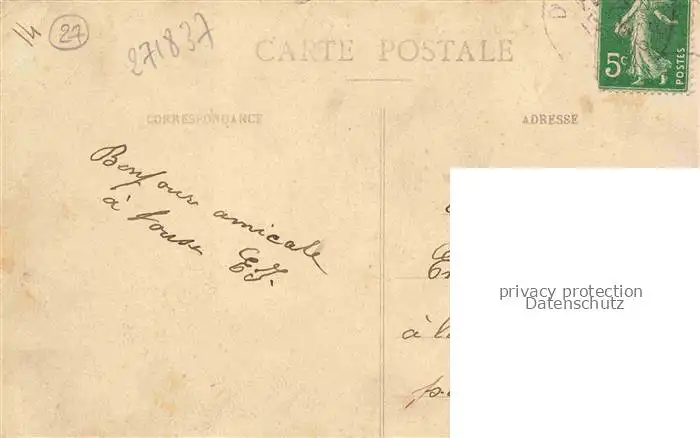 14
27
271837
CARTE POSTALE
5c
POSTES
CORRESPONDANCE
ADRESSE
Bonjour amicale
à tous
EJ.
à la
privacy protection
Datenschutz